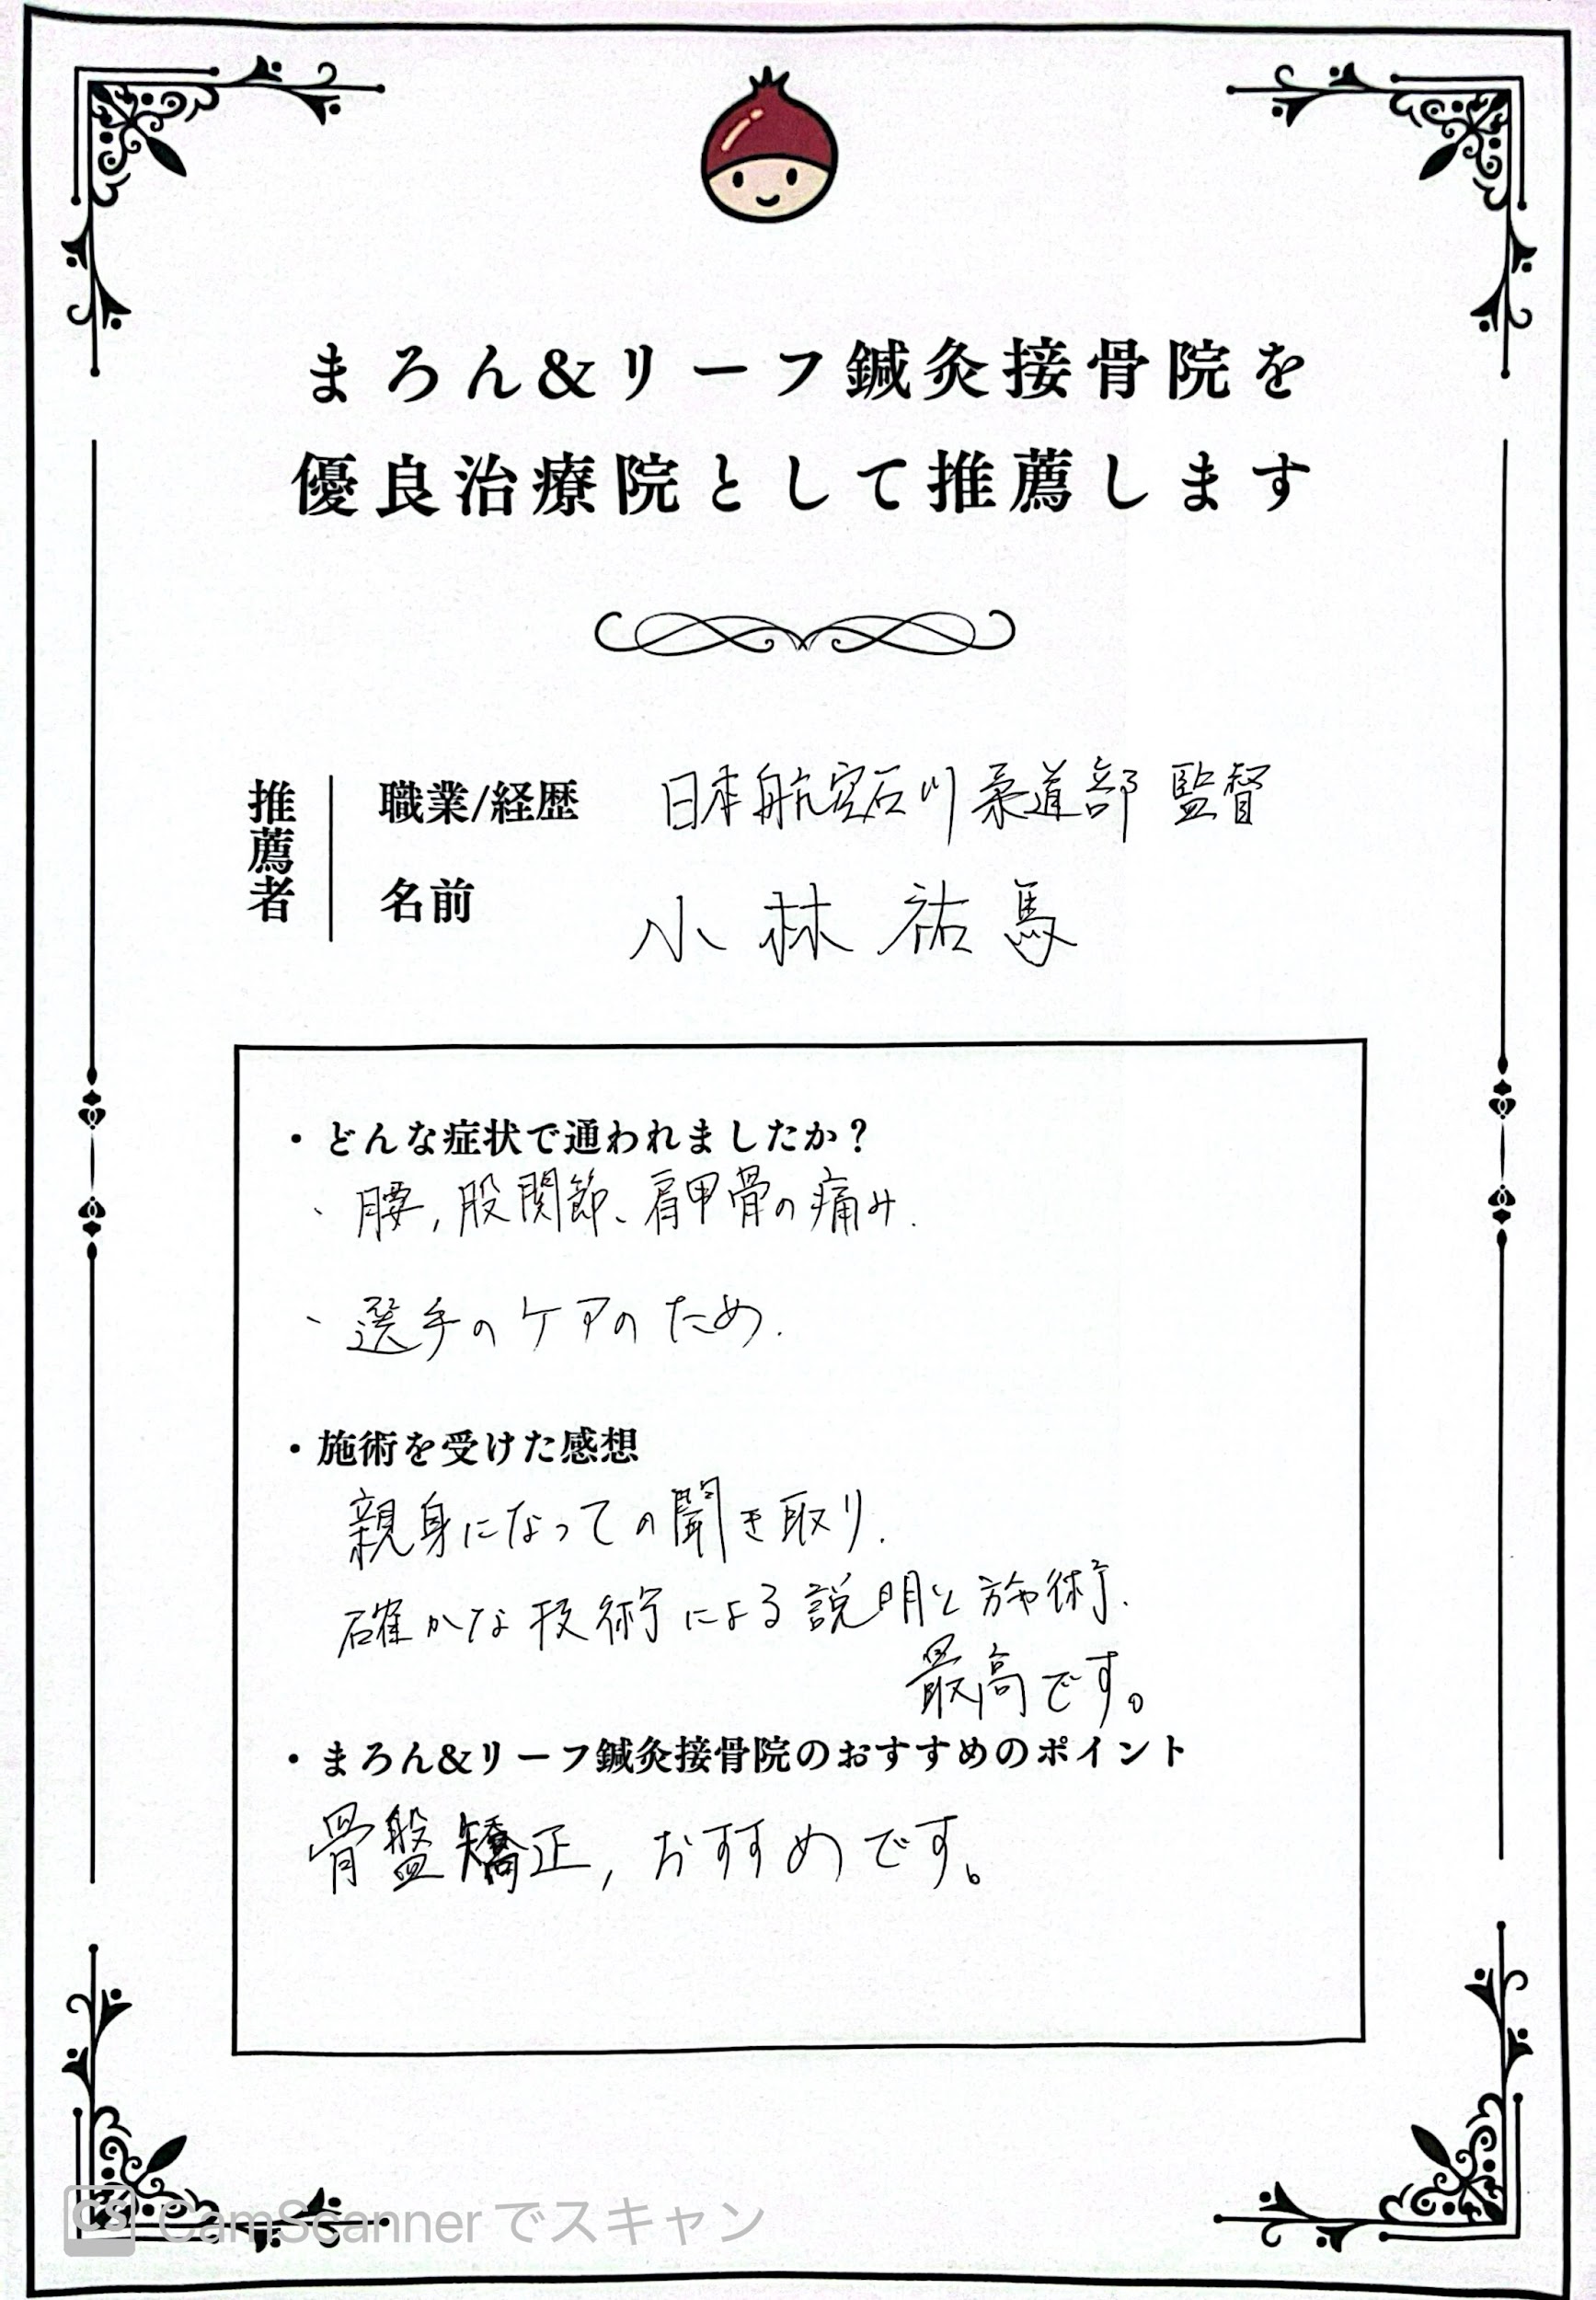 まろん&リーフ鍼灸接骨院を
優良治療院として推薦します
推薦者
職業/経歴 日本航空石川柔道部 監督
名前 小林祐馬
・どんな症状で通われましたか？
、腰,股関節、肩甲骨の痛み.
、選手のケアのため.
・施術を受けた感想
親身になっての聞き取り.
確かな技術による説明と施術.
最高です。
・まろん&リーフ鍼灸接骨院のおすすめのポイント
骨盤矯正,おすすめです。
CS CamScannerでスキャン